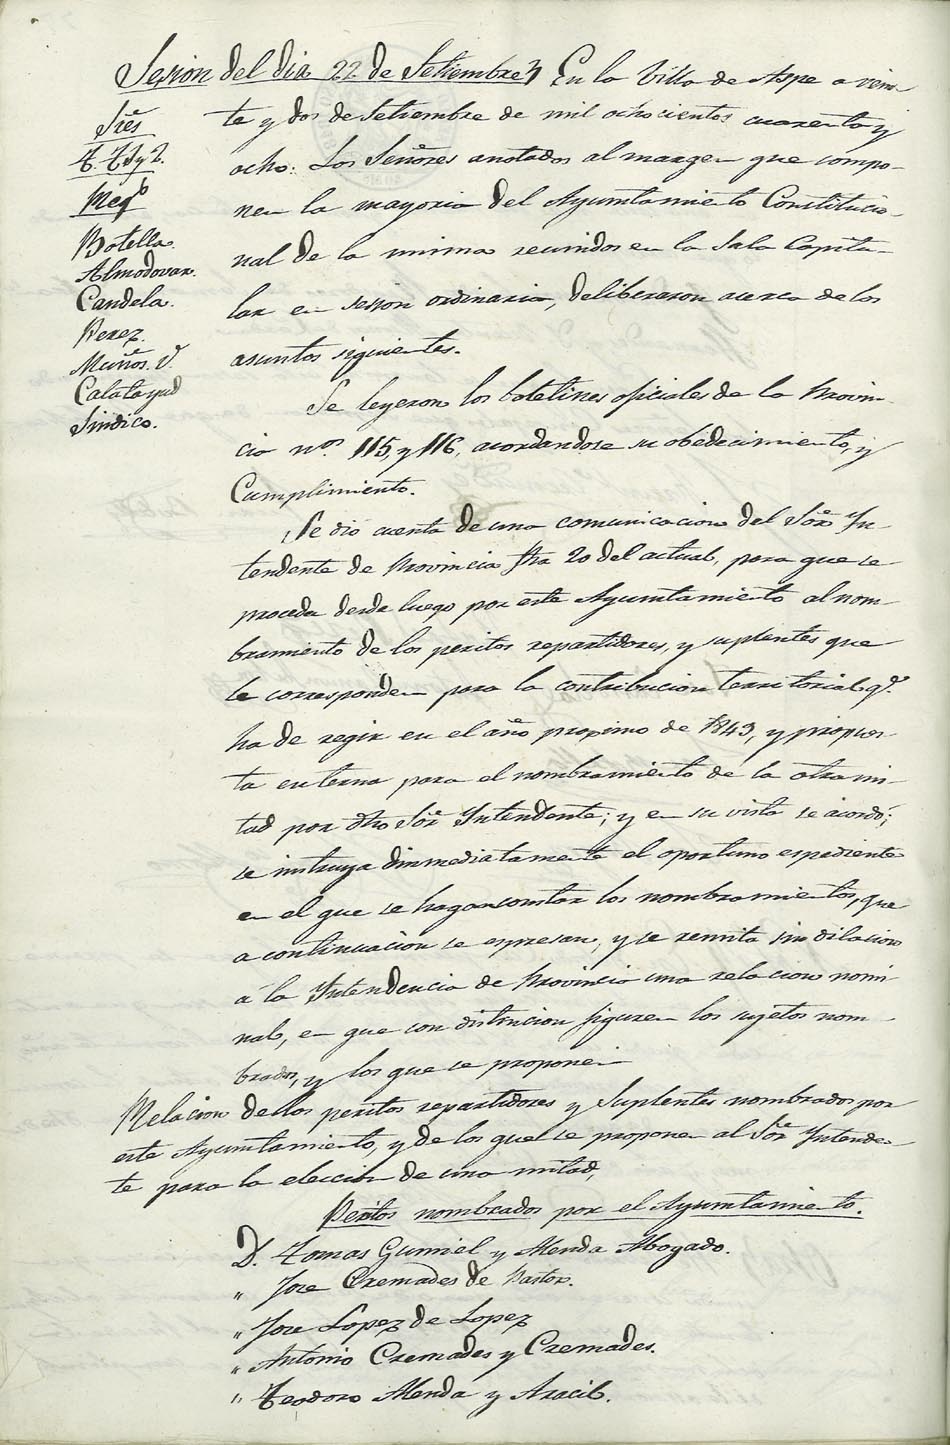 Sesion del dia 22 de Setiembre. En la Villa de Aspe a vein-
te y dos de Setiembre de mil ochocientos cuarenta y
ocho: Los Señores anotados al margen que compo-
nen la mayoria del Ayuntamiento Constitucio-
nal de la misma reunidos en la Sala Capitu-
lar en sesion ordinaria, deliberaron acerca de los
asuntos siguientes.
Sres
T. 1º y 2.
Regs
Botella.
Almodovar.
Candela.
Perez.
Muños. V.
Calatayud
Sindico.
Se leyeron los boletines oficiales de la Provin-
cia nos. 115, y 116, acordandose su obedecimiento, y
Cumplimiento.
Se dió cuenta de una comunicacion del Sor. Yn-
tendente de Provincia fha 20 del actual, para que se
proceda desde luego por este Ayuntamiento al nom-
bramiento de los peritos repartidores, y suplentes que
le corresponden para la contribucion territorial qe.
ha de regir en el año proximo de 1849, y propues-
ta en terna para el nombramiento de la otra mi-
tad por dho Sor. Yntendente; y en su vista se acordó;
se instruya inmediatamente el oportuno espediente
en el que se hagan constar los nombramientos, que
a continuacion se espresan, y se remita sin dilacion
á la Yntendencia de Provincia una relacion nomi-
nal, en que con distincion figuren los sujetos nom-
brados, y los que se proponen
Relacion de los peritos repartidores y Suplentes nombrados por
este Ayuntamiento, y de los que se proponen al Sor. Yntenden-
te para la eleccion de una mitad,
Peritos nombrados por el Ayuntamiento.
D. Tomas Gumiel y Alenda Abogado.
" Jose Cremades de Pastor.
" Jose Lopez de Lopez
" Antonio Cremades y Cremades.
" Teodoro Alenda y Aracil.